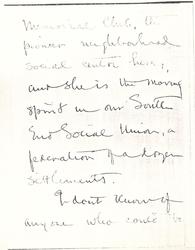 Memorial Club, the
pioneer neighborhood
social centre here;
and she is the moving
spirit in our South
End Social Union, a
federation of a dozen
settlements.
I don't know of
anyone who could be